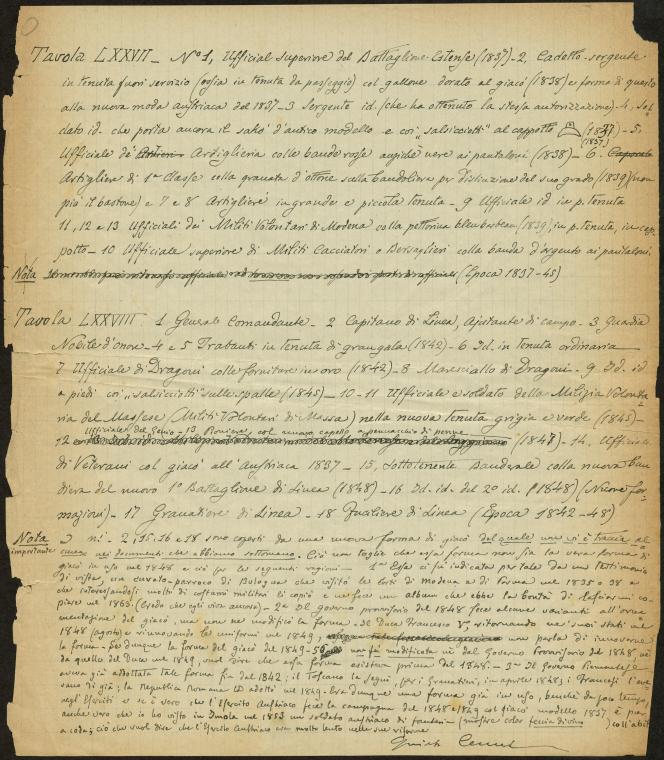 Tavola LXXVII – Nº 1, Ufficial superiore del Battaglione Estense (1837) – 2, Cadetto-sergente
in tenuta fuori servizio (ossia in tenuta da passeggio) col gallone dorato al giacó (1838) e forma di questo
alla nuova moda austriaca del 1837 – 3 Sergente id. (che ha ottenuto la stessa autorizzazione) – 4, sol
dato id. che porta ancora il sakó d'antico modello e coi "salsicciotti" al cappotto (1837) – 5,
Ufficiale di Artiglieria colle bande rosse anzichè nere ai pantaloni (1838) – 6 – Caporale (1837)
Artigliere di 1ª Classe colla granata d'ottone sulla bandoliera per distinzione del suo grado (1839) (non
più il bastone) e 7 e 8 Artigliere in grande e piccola tenuta – 9 Ufficiale id in p. tenuta
11, 12 e 13 Ufficiali dei Militi Volontari di Modena colla pettorina bleu (1839), in p. tenuta, in cap
potto – 10 Ufficiale superiore di Militi Cacciatori o Bersaglieri colla banda d'argento ai pantaloni.
Nota (Epoca 1837-45)
Tavola LXXVIII 1 Generale Comandante – 2 Capitano di Linea, Ajutante di campo – 3 Guardia
Nobile d'onore – 4 e 5 Trabanti in tenuta di gran gala (1842) – 6 Id. in tenuta ordinaria
7 Ufficiale di Dragoni colle forniture in oro (1842) – 8 Maresciallo di Dragoni – 9 Id. id
a piedi coi "salsicciotti" sulle spalle (1845) – 10 – 11 Ufficiale e soldato della Milizia Volonta
ria del Massese (Militi Volontari di Massa) nella nuova tenuta grigia e verde (1845) –
Ufficiale del Genio – 13 Pioniere, col nuovo cappello a pennacchio di penne
12 (1847) – 14, Ufficiale
di Veterani col giacó all'Austriaca 1837 – 15, Sottotenente Banderale colla nuova ban
diera del nuovo 1º Battaglione di Linea (1848) – 16 Id. id. del 2º id. (1848) (Nuove for
mazioni) – 17 Granatiere di Linea – 18 Fuciliere di Linea (Epoca 1842-48)
Nota importante I ni. 2, 15, 16 e 18 sono coperti da una nuova forma di giacó del quale non vi è traccia al
cuna nei documenti che abbiamo sottomano. Ciò non toglie che essa forma non sia la vera forma di
giacó in uso nel 1848 e ciò per le seguenti ragioni – 1ª Essa ci fu indicata per tale da un testimonio
di vista, un curato-parroco di Bologna che visitò le corti di Modena e di Parma nel 1835 o 38 e
che interessandosi molto di costumi militari li copiò e ne fece un album che ebbe la bontà di lasciarmi co
piare nel 1865 (credo che egli viva ancora) – 2ª Il governo provvisorio del 1848 fece alcune varianti all'orna
mentazione del giacó, ma non ne modificò la forma. Il Duca Francesco V, ritornando ne' suoi stati nel
1848 (agosto) e rinnovando le uniformi nel 1849, non parla di innovarne
la forma – per dunque la forma del giacó del 1849-59 non fu modificata nè dal Governo Provvisorio del 1848 nè
da quello del Duca nel 1849, vuol dire che essa forma esisteva prima del 1848. – 3ª Il Governo Piemontese
aveva già adottata tale forma fin dal 1842; il Toscano la seguì, (per i Granatieri, in aprile 1848); i Francesi l'ave
vano di già; la Repubblica Romana la adottò nel 1849. Era dunque una forma già in uso, benchè da poco tempo,
negli Eserciti e se è vero che l'Esercito Austriaco fece la campagna del 1848 e 1849 col giacó modello 1837 è pur
anche vero che io ho visto in Imola nel 1853 un soldato austriaco di fanteria (mostre color feccia di vino) coll'abito
a coda; ciò che vuol dire che l'Esercito Austriaco era molto lento nelle sue riforme